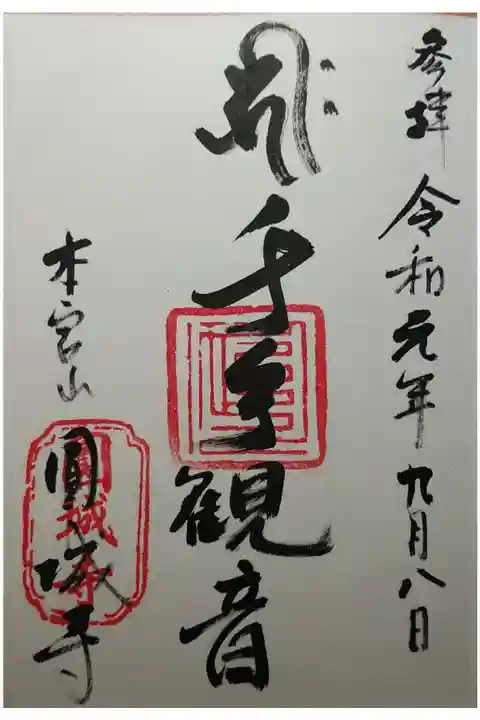 参拝 令和元年 九月八日
千手観音
本宮山
圓城寺